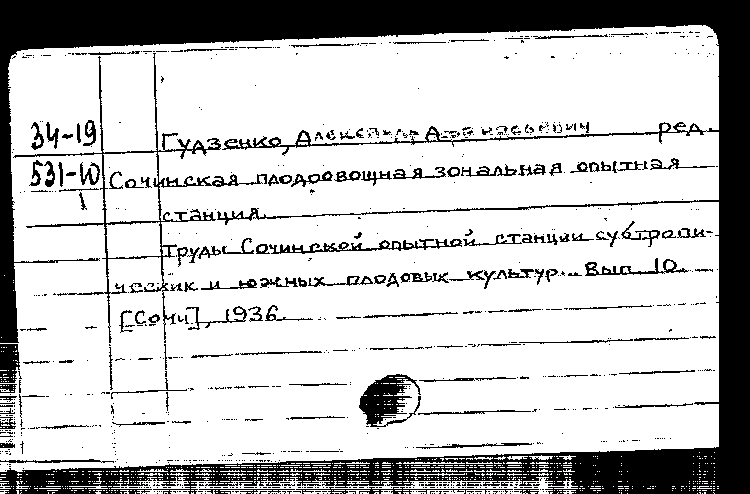 34-19 Гудзенко, Александр Афанасьевич ред.
531-10 Сочинская плодоовощная зональная опытная
1 станция.
Труды Сочинской опытной станции субтропи-
ческих и южных плодовых культур... Вып. 10.
[Сочи], 1936.